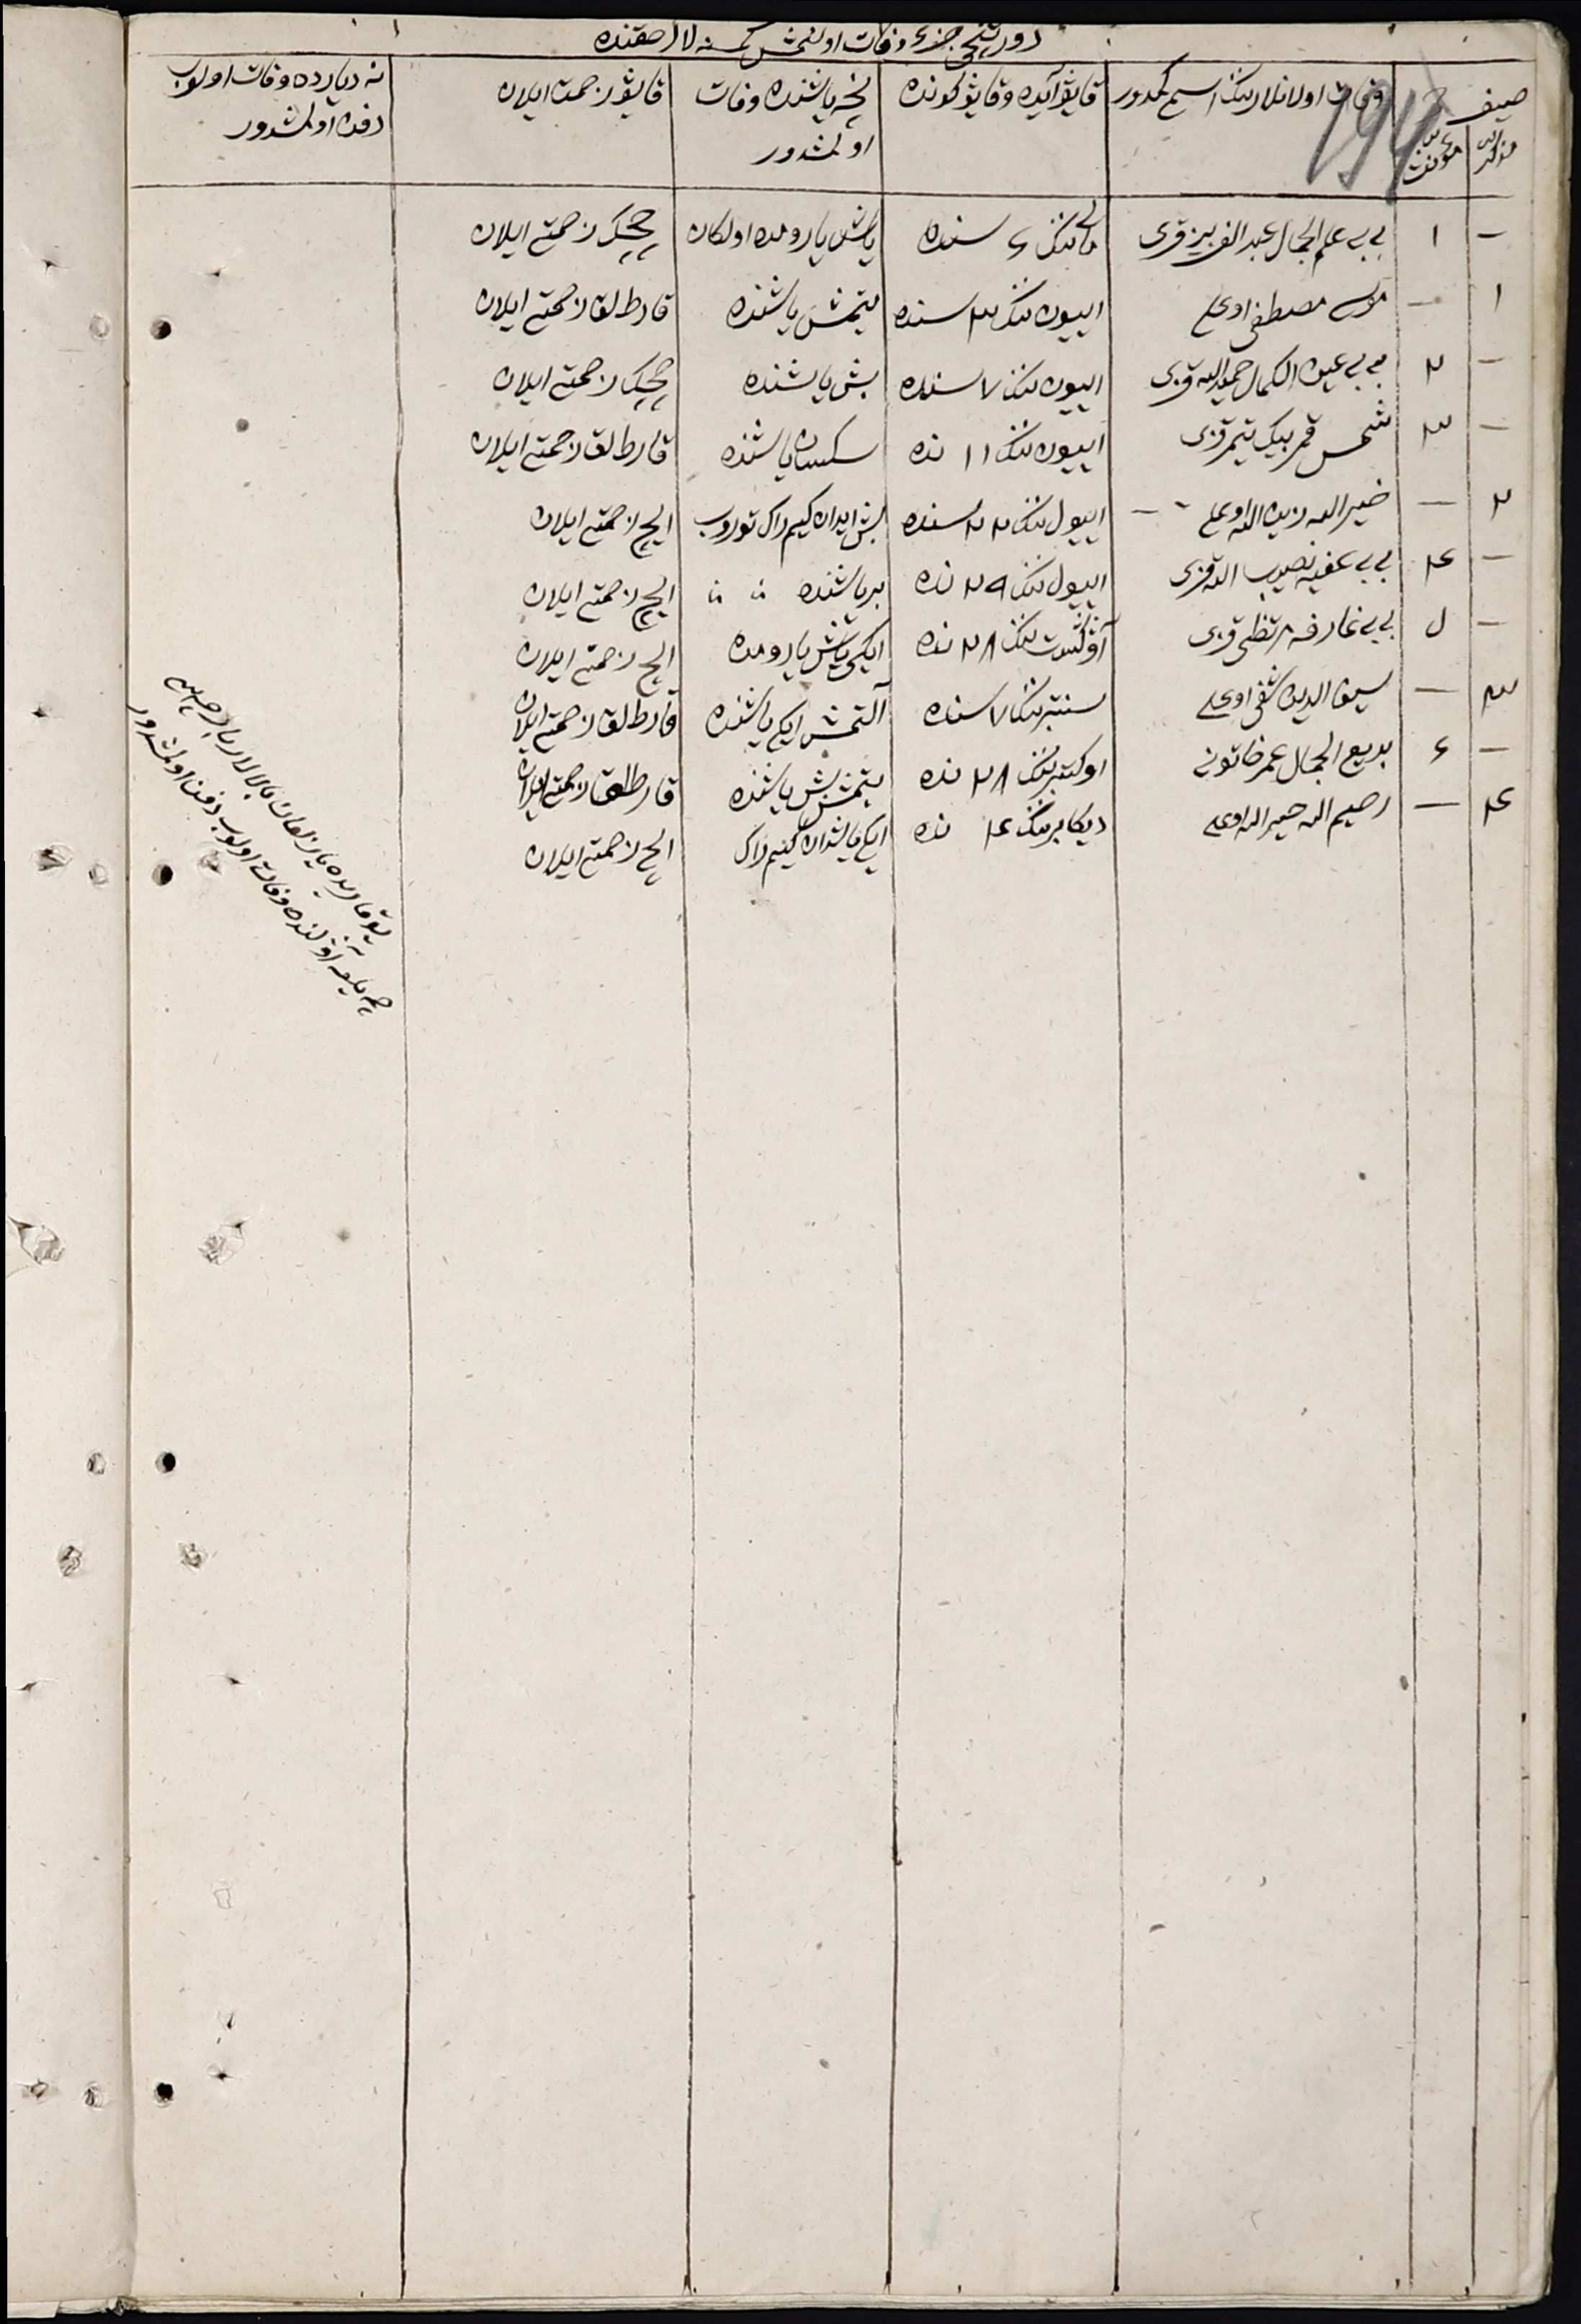 دورتنچی جزء وفات اولنمش کمسنه لار حقنده
صنف
مذکر مؤنث
وفات اولانلارننک اسمی کمدور
قایو آیده و قایو کونده
نچه یاشنده وفات
اولمشدور
قایو زحمت ایلان
نه دیارده وفات اولوب
دفن اولمشدور
— ۱ بی بی علم الجمال عبد العزیز قزی مای ننک ۶ سنده یاش یارومده اولکان چچک زحمتی ایلان
۱ — موسی مصطفی اوغلی اییون ننک ۳ سنده یتمش یاشنده قارطلق زحمتی ایلان
— ۲ بی بی عین الکمال حمید الله قزی اییون ننک ۷ سنده بش یاشنده چچک زحمتی ایلان
— ۳ شمس قمر بیک تیمر قزی اییون ننک ۱۱ نده سکسان یاشنده قارطلق زحمتی ایلان
۲ — خیر الله زین الله اوغلی اییول ننک ۲۲ سنده بش ایدان کیم راک توروب ایچ زحمتی ایلان
— ۴ بی بی عفیفه نصیب الله قزی اییول ننک ۲۹ نده بر یاشنده ایچ زحمتی ایلان
— ۵ بی بی عارفه مرتضی قزی آوغست ننک ۲۸ نده ایکی یاش یارومده ایچ زحمتی ایلان
۳ — سیف الدین شفی اوغلی سنتبر ننک ۷ سنده آلتمش ایکی یاشنده قارطلق زحمتی ایلان
— ۶ بدیع الجمال عمر خاتونی اوکتبر ننک ۲۸ نده یتمش بش یاشنده قارطلق زحمتی ایلان
۴ — رحیم الله حبیر الله اوغلی دیکابر ننک ۴ نده ایکی یاشدان کیم راک ایچ زحمتی ایلان
یوقاریده یازلغان بالالار بارچه سی
هم اولنده وفات اولوب دفن اولمشدور